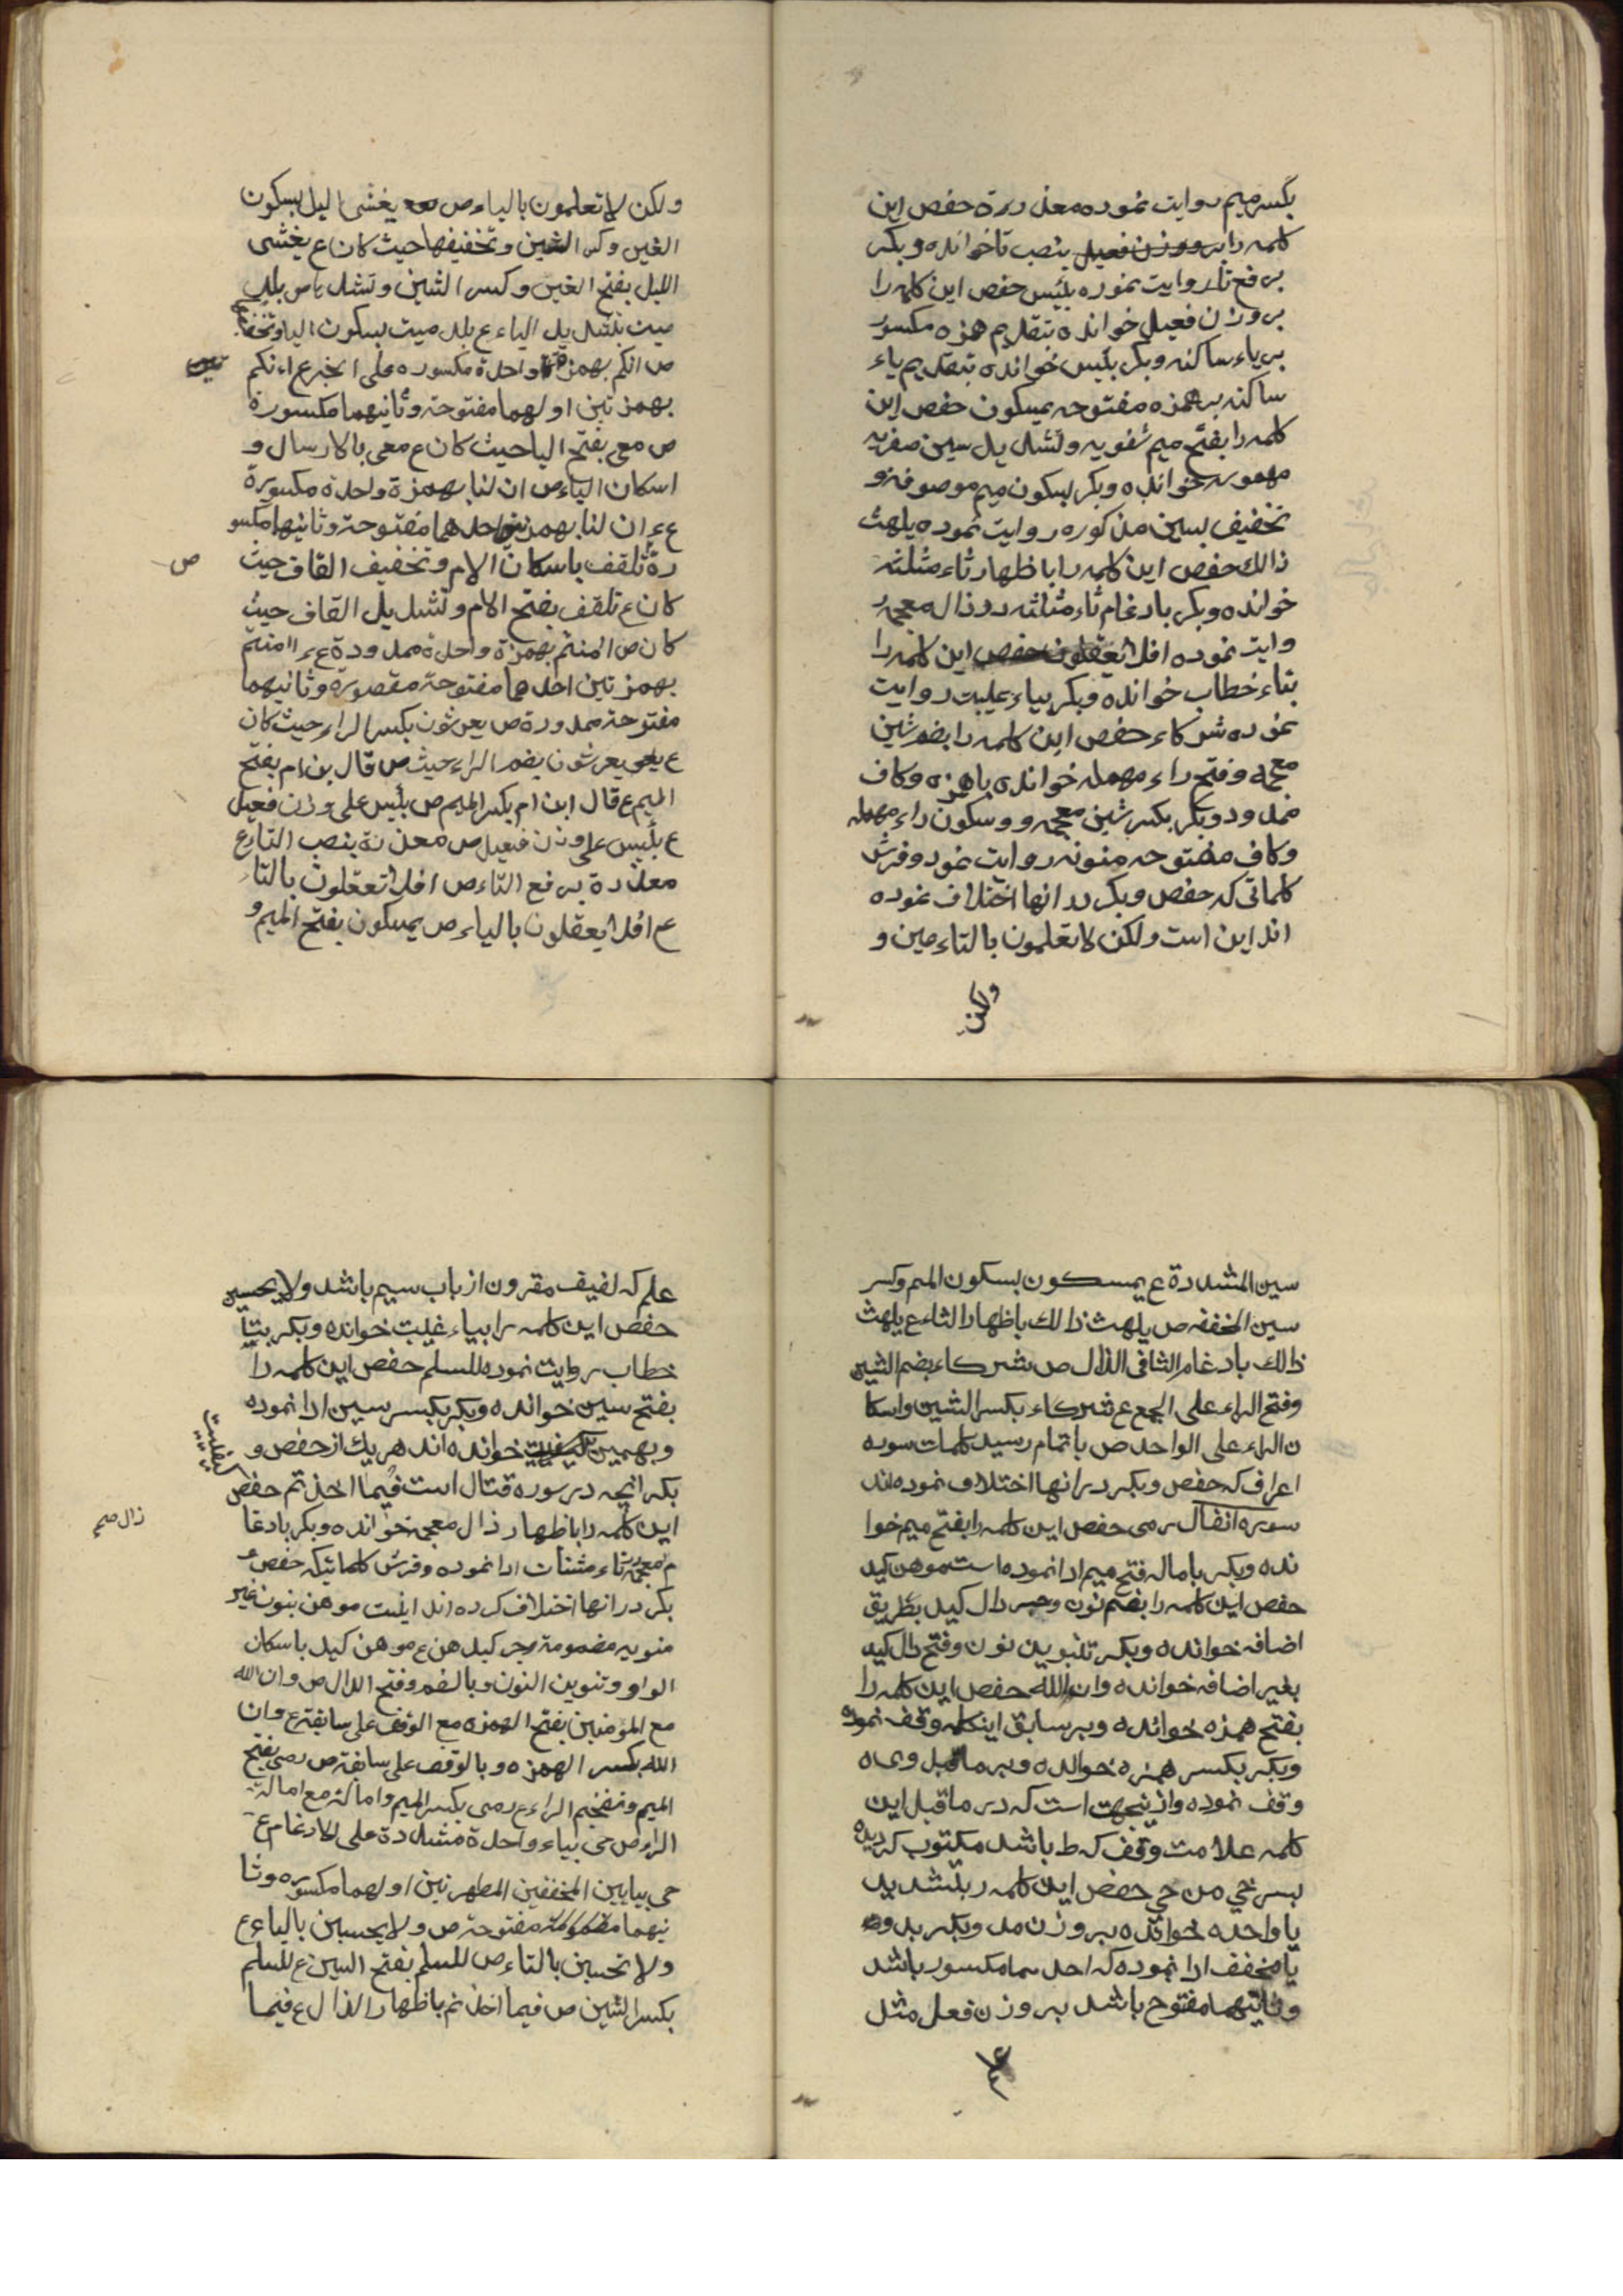 بکسر میم روایت نموده معذرة حفص این
کلمه را بر وزن فعیل بنصب تا خوانده و بکر
برفع تا روایت نموده بئیس حفص این کلمه را
بر وزن فعیل خوانده بتقدیم همزه مکسور
بر یاء ساکنه و بکر بیئس خوانده بتقدیم یاء
ساکنه بر همزه مفتوحه یمسکون حفص این
کلمه را بفتح میم شفویه و تشدید سین صفریه
مهموسه خوانده و بکر بسکون میم موصوفه و
تخفیف سین مذکوره روایت نموده یلهث
ذالك حفص این کلمه را باظهار ثاء مثلثه
خوانده و بکر بادغام ثاء مثلثه در ذال معجمه ر
وایت نموده افلا تعقلون حفص این کلمه را
بتاء خطاب خوانده و بکر بیاء غیبت روایت
نموده شرکاء حفص این کلمه را بضم شین
معجمه و فتح راء مهمله خوانده با همزه و کاف
ممدود و بکر بکسر شین معجمه و وسکون راء مهمله
و کاف مفتوحه منونه روایت نمود و فرش
کلماتی که حفص و بکر در انها اختلاف نموده
اند این است ولکن لا تعلمون بالتاء مین و
ولکن
ولکن لا تعلمون بالیاء ص یغشی الیل بسکون
الغین وکسر الشین وتخفیفها حیث کان ع یغشی
اللیل بفتح الغین وکسر الشین وتشدیدها ص بلد
میت بتشدید الیاء ع بلد میت بسکون الیا وتخفیفها
ص انکم بهمزة واحدة مکسوره علی الخبر ع اءنکم
بهمزتین اولهما مفتوحة وثانیهما مکسورة
ص معی بفتح الیا حیث کان ع معی بالارسال و
اسکان الیاء ص ان لنا بهمزة واحدة مکسورة
ع ءان لنا بهمزتین احدهما مفتوحة وثانیهما مکسو
رة تلقف باسکان الام وتخفیف القاف حیث
ص
کان ع تلقف بفتح الام وتشدید القاف حیث
کان ص امنتم بهمزة واحدة ممدودة ع ءامنتم
بهمزتین احدهما مفتوحة مقصورة وثانیهما
مفتوحة ممدودة ص یعرشون بکسر الراء حیث کان
ع یعرشون بضم الراء حیث ص قال بن ام بفتح
المیم ع قال ابن ام بکسر المیم ص بئیس علی وزن فعیل
ع بیئس علی وزن فیعل ص معذرة بنصب التاء ع
معذرة برفع التاء ص افلا تعقلون بالتاء
ع افلا یعقلون بالیاء ص یمسکون بفتح المیم و
سین المشددة ع یمسکون بسکون المیم وکسر
سین المخففه ص یلهث ذالك باظهار الثاء ع یلهث
ذالك بادغام الثا فی الذال ص شرکاء بضم الشین
وفتح الراء علی الجمع ع شرکاء بکسر الشین واسکا
ن الراء علی الواحد ص باتمام رسید کلمات سوره
اعراف که حفص و بکر در انها اختلاف نموده اند
سوره انفال رمی حفص این کلمه را بفتح میم خوا
نده و بکر باماله فتح میم ادا نموده است موهن کید
حفص این کلمه را بضم نون و جر دال کید بطریق
اضافه خوانده و بکر بتنوین نون و فتح دال کید
بغیر اضافه خوانده وان الله حفص این کلمه را
بفتح همزه خوانده و بر سابق اینکلمه وقف نموده
و بکر بکسر همزه خوانده و بر ماقبل وی
وقف نموده و از ینجهت است که در ماقبل این
کلمه علامت وقف که ط باشد مکتوب کردیده
من حی حفص این کلمه ر بتشدید
یا واحده خوانده بر وزن مد و بکر بدو
یا مخفف ادا نموده که احدهما مکسور باشد
وثانیهما مفتوح باشد بر وزن فعل مثل
علم که لفیف مقرون از باب سیم باشد ولا یحسبن
حفص این کلمه را بیاء غیبت خوانده و بکر بتاء
خطاب روایت نموده للسلم حفص این کلمه را
بفتح سین خوانده و بکر بکسر سین ادا نموده
و بهمین کیفیت خوانده اند هریك از حفص و
بکر انچه در سوره قتال است فیما اخذتم حفص
این کلمه را باظهار ذال معجمه خوانده و بکر بادغا
م معجمه در تاء مثنات ادا نموده و فرش کلماتیکه حفص و
بکر در انها اختلاف کرده اند اینست موهن بنون غیر
منونه مضمومة وجر کید ص ع موهن کید باسکان
الواو وتنوین النون وبالضم وفتح الدال ص وان الله
مع المومنین بفتح الهمزه مع الوقف علی سابقة ع وان
الله بکسر الهمزه وبالوقف علی سابقة ص رمی بفتح
المیم وتفخیم الراء ع رمی بکسر المیم وامالة مع امالة
الراء ص حی بیاء واحدة مشددة علی الادغام ع
حی بیایین المخففین المظهرتین اولهما مکسوره وثا
نیهما مفتوحة ص ولا یحسبن بالیاء ع
ولا تحسبن بالتاء ص للسلم بفتح السین ع للسلم
بکسر الشین ص فیما اخذتم باظهار الذال ع فیما